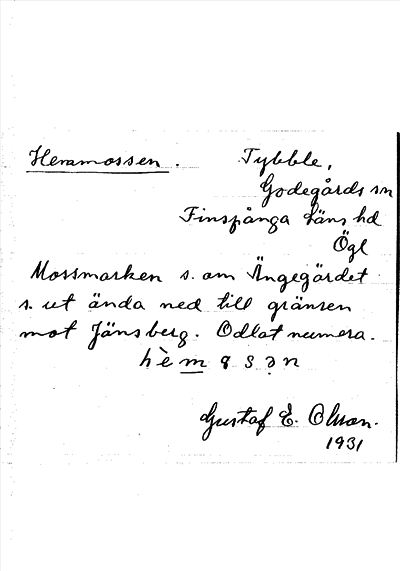 Heramossen. Tybble,
Godegårds sn
Finspånga läns hd
Ögl
Mossmarken s. om Ängegärdet
s. ut ända ned till gränsen
mot Jänsberg. Odlat numera.
Gustaf E. Olson.
1931